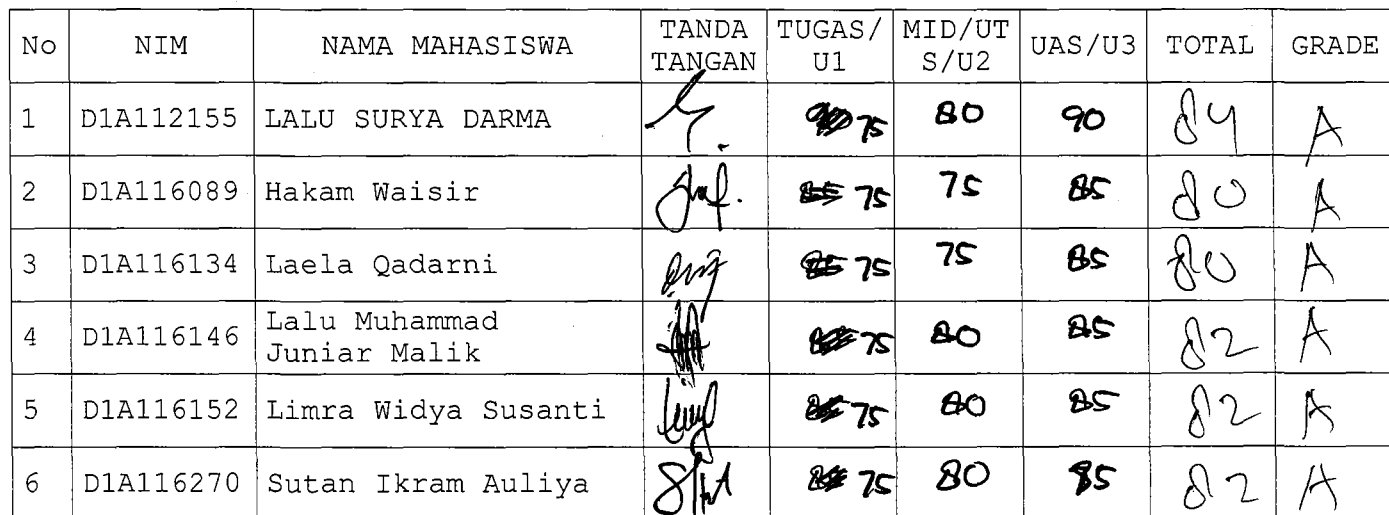 No NIM NAMA MAHASISWA TANDA TANGAN TUGAS/U1 MID/UTS/U2 UAS/U3 TOTAL GRADE
1 D1A112155 LALU SURYA DARMA 75 80 90 84 A
2 D1A116089 Hakam Waisir 75 75 85 80 A
3 D1A116134 Laela Qadarni 75 75 85 80 A
4 D1A116146 Lalu Muhammad Juniar Malik 75 80 85 82 A
5 D1A116152 Limra Widya Susanti 75 80 85 82 A
6 D1A116270 Sutan Ikram Auliya 75 80 85 82 A